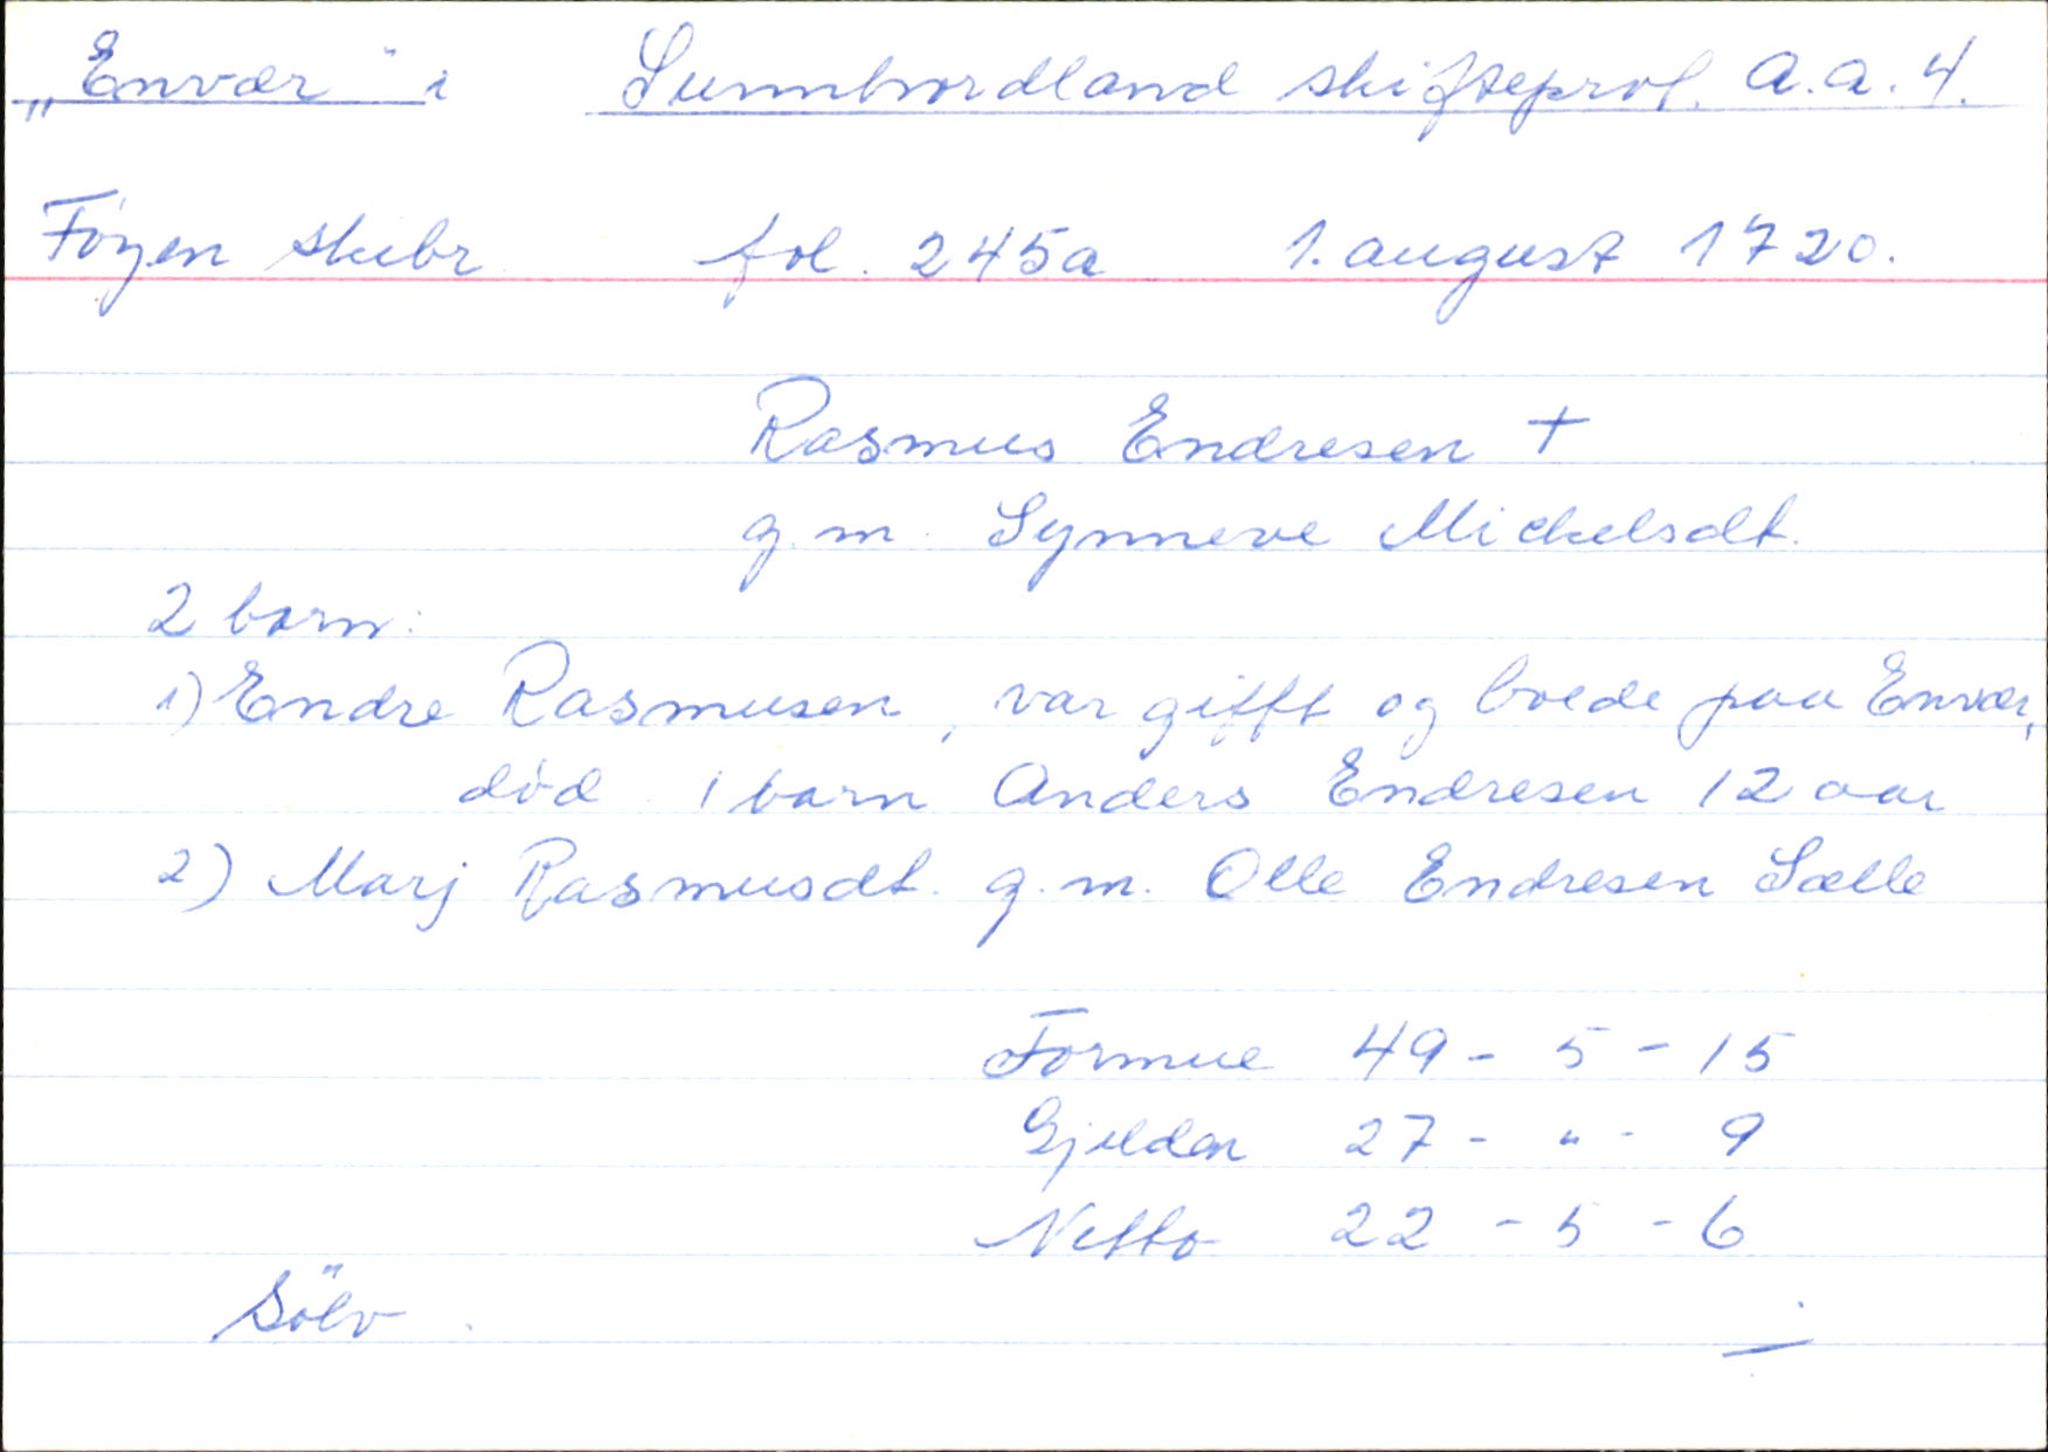 „Envær" i Sunnhordland skifteprot. A.a.4.
Föyen skibr fol. 245a 1. august 1720.
Rasmus Endresen +
g.m. Synneve Mickelsdt.
2 barn:
1) Endre Rasmusen, var gifft og boede paa Envær,
död. 1 barn Anders Endresen 12 aar
2) Marj Rasmusdt. g.m. Olle Endresen Sælle
Formue 49 - 5 - 15
Gjelden 27 - " - 9
Netto 22 - 5 - 6
Sölv.